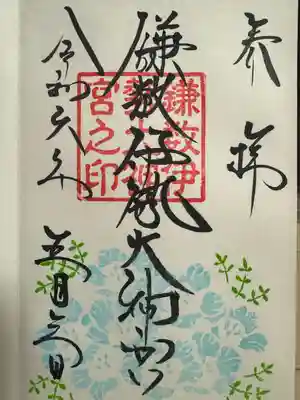 奉拝
鎌数伊勢大神宮
鎌数伊
勢大神
宮之印
令和六年
五月
日